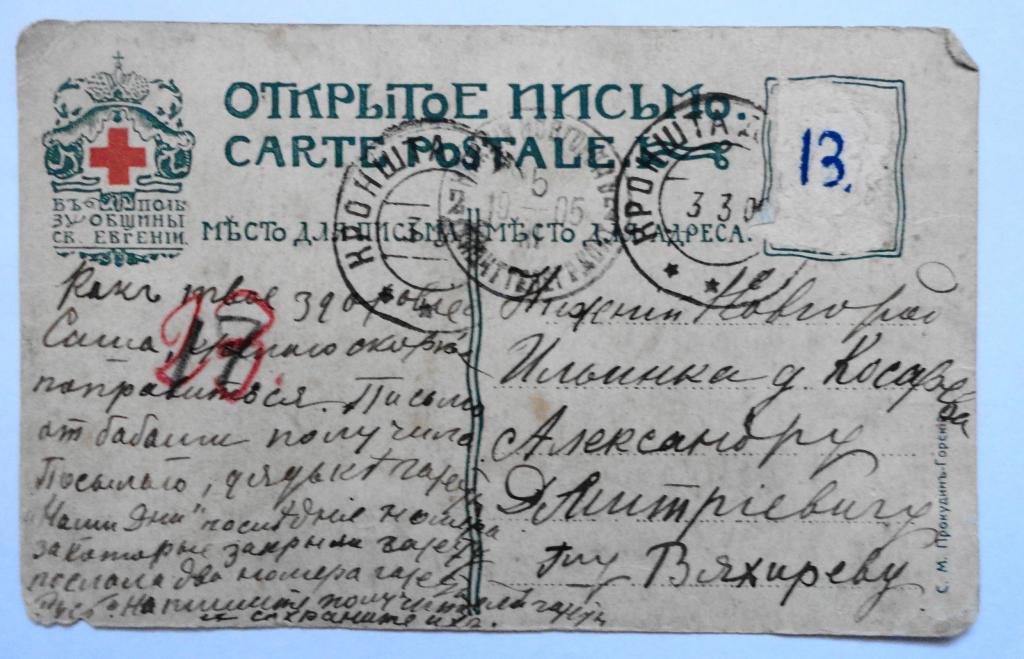 ОТКРЫТОЕ ПИСЬМО.
CARTE POSTALE.
ВЪ ПОЛЬ
ЗУ ОБЩИНЫ
СВ. ЕВГЕНІИ.
МѢСТО ДЛЯ ПИСЬМА
МѢСТО ДЛЯ АДРЕСА.
КРОНШТА
3
5
19 05
КРОНШТА
3 3 0
13.
13.
17
Какъ твое здоровье
Саша, скорѣе
поправиться. Письмо
от бабаши получила
Посылаю, дядькѣ газету
"Наши Дни" послѣднie номера
за которые закрыли газету
послала два номера газеты
"Русь". Напишите получите ли газеты
и сохраните их.
Нижнiй Новгород
Ильинка д Косарева
Александру
Дмитрiевичу
Гну Вяхиреву
С. М. Прокудинъ-Горскій